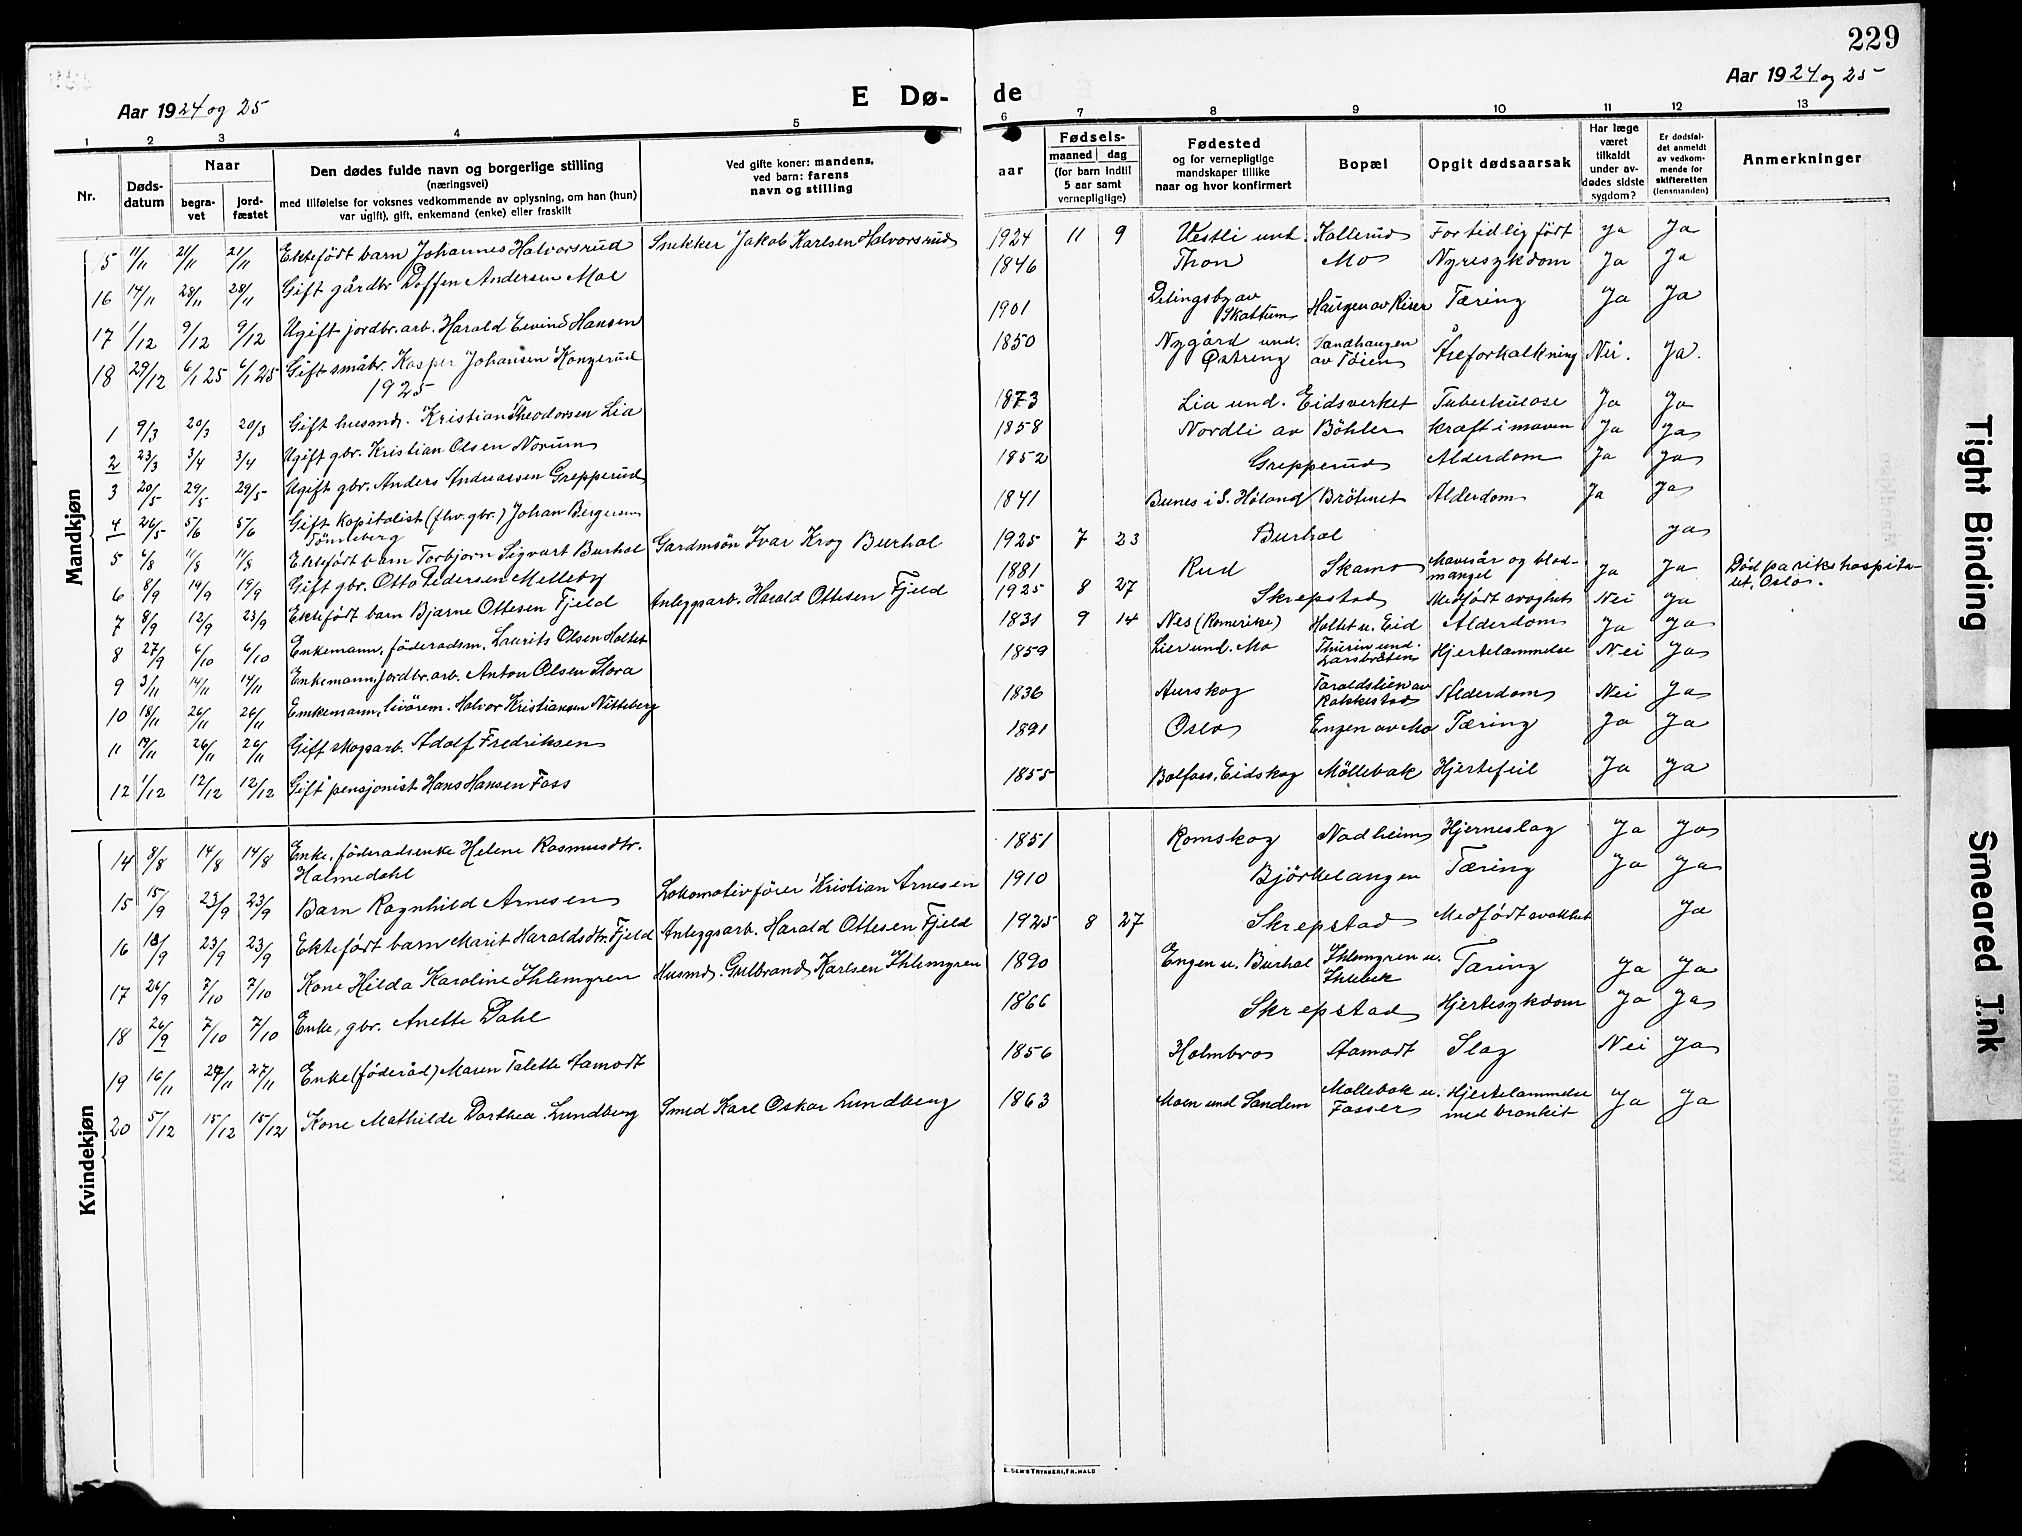 229
Aar 1924 og 25
E Dø-
de
Aar 1924 og 25
1 2 3 4 5 6 7 8 9 10 11 12 13
Nr.
Døds-datum
Naar
begra-vet
jord-fæstet
Den dødes fulde navn og borgerlige stilling
(næringsvei)
med tilføielse for voksnes vedkommende av oplysning, om han (hun)
var ugift), gift, enkemand (enke) eller fraskilt
Ved gifte koner: mandens,
ved barn: farens
navn og stilling
aar
Fødsels-
maaned dag
(for barn indtil
5 aar samt
vernepligtige)
Fødested
og for vernepligtige
mandskaper tillike
naar og hvor konfirmert
Bopæl
Opgit dødsaarsak
Har læge
været
tilkaldt
under av-
dødes sidste
sygdom?
Er dødsfal-
det anmeldt
av vedkom-
mende for
skifteretten
(lensmanden)
Anmerkninger
Mandkjøn
5 11/11 21/11 21/11 Ektefödt barn Johannes Halvorsrud Snekker Jakob Karlsen Halvorsrud 1924 11 9 Vestli und. Kollerud For tidlig födt Ja Ja
16 14/11 28/11 28/11 Gift gårdbr. Deffen Andersen Moe 1846 Thon Mo Nyresykdom Ja Ja
17 1/12 9/12 9/12 Ugift jordbr. arb. Harald Eivind Hansen 1901 Delingsby av Skattum Haugen av Riser Tæring Ja Ja
18 29/12 6/1 25 6/1 25 Gift småbr. Kasper Johansen Kongerud 1850 Nygård und. Østreng Sandhaugen av Töien Åreforkalkning Nei. Ja.
1925
1 9/3 20/3 20/3 Gift husmd. Kristian Theodorsen Lia 1873 Lia und. Eidsverket Tuberkulose Ja Ja
2 23/3 3/4 3/4 Ugift gbr. Kristian Olsen Norum 1858 Nordli av Böhler Kræft i maven Ja Ja
3 20/5 29/5 29/5 Ugift gbr. Anders Andreassen Grepperud 1852 Grepperud Alderdom Ja Ja
4 26/5 5/6 5/6 Gift Kapitalist (fhv. gbr.) Johan Bergersen Tönneberg 1841 Bunes i S. Höland Brötmet Alderdom Ja Ja
5 6/8 11/8 11/8 Ektefödt barn Torbjorn Sigvart Burhol Gardmsön Ivar Krog Burhol 1925 7 23 Burhol Ja
6 8/9 19/9 19/9 Gift gbr. Otto Pedersen Melleby 1881 Rud Skamo Mavesår og blod-mangel Ja Ja Död pa rikshospita-let, Oslo.
7 8/9 12/9 23/9 Ektefödt barn Bjarne Ottesen Fjeld Anleggsarb. Harald Ottesen Fjeld 1925 8 27 Skrepstad Medfödt svaghet Nei Ja
8 27/9 6/10 6/10 Enkemann, föderadsm. Laurits Olsen Holtet 1831 9 14 Nes (Romerike) Holtet u. Eid Alderdom Ja Ja
9 3/11 14/11 14/11 Enkemann, jordbr. arb. Anton Olsen Slora 1859 Lier und. Mo Thurin und. Larsbråten Hjertelammelse Nei Ja
10 18/11 26/11 26/11 Emkemann, livörem. Halvor Kristiansen Nitteberg 1836 Aurskog Taraldslien av Rakkestad Alderdom Nei Ja
11 19/11 26/11 26/11 Gift skogsarb. Adolf Fredriksen 1891 Oslo Engen av Mo Tæring Ja Ja
12 1/12 12/12 12/12 Gift pensjonist Hans Hansen Foss 1855 Bolfoss, Eidskog Möllebak Hjertefeil Ja Ja
Kvindekjøn
14 8/8 14/8 14/8 Enke, föderadsenke Helene Rasmusdtr. Halmedahl 1851 Romskog Nodheim Hjerneslag Ja Ja
15 15/9 23/9 23/9 Barn Ragnhild Arnesen Lokomotivförer Kristian Arnesen 1910 Björkelangen Tæring Ja Ja
16 18/9 23/9 23/9 Ektefödt barn Marit Haraldsdtr. Fjeld Anleggsarb. Harald Ottesen Fjeld 1925 8 27 Skrepstad Medfödt svakhet Ja
17 26/9 7/10 7/10 Kone Hilda Karoline Ihlemgren Husmd. Gulbrand Karlsen Ihlemgren 1890 Engen u. Burhol Ihlemgren u. Tæring Ja Ja
18 26/9 7/10 7/10 Enke, gbr. Anette Dahl 1866 Skrepstad Hjertesykdom Ja Ja
19 16/11 27/11 27/11 Enke (föderåd) Maren Talette Aamodt 1856 Holmbro Aamodt Slag Nei Ja
20 5/12 15/12 15/12 Kone Mathilde Dorthea Lundberg Smed Karl Oskar Lundberg 1863 Moen und Sandem Mollebak u. Fosser Hjertelammelse med bronkit Ja Ja
E. SEM'S TRYKKERI, FR.HALD
Tight Binding
Smeared Ink